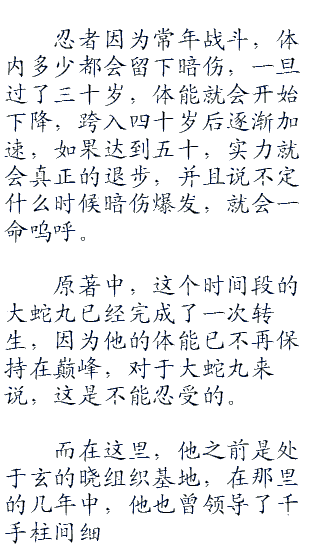 忍者因为常年战斗，体
内多少都会留下暗伤，一旦
过了三十岁，体能就会开始
下降，跨入四十岁后逐渐加
速，如果达到五十，实力就
会真正的退步，并且说不定
什么时候暗伤爆发，就会一
命呜呼。
原著中，这个时间段的
大蛇丸已经完成了一次转
生，因为他的体能已不再保
持在巅峰，对于大蛇丸来
说，这是不能忍受的。
而在这里，他之前是处
于玄的晓组织基地，在那里
的几年中，他也曾领导了千
手柱间细